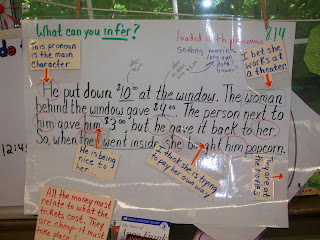 What can you infer?
Loaded with pronouns
8/4
This pronoun
is the main
character
Setting movies
long ago
I bet she
works at
a theater.
He put down $10.00 at the window. The woman
behind the window gave $4.00. The person next to
him gave him $3.00, but he gave it back to her.
So, when they went inside, she bought him popcorn.
He is being
nice to
her...
I think she is trying
to pay her own way
They are at
the movies
All the money must
relate to what the
tickets cost. They
are cheap-it must
take place
12:45